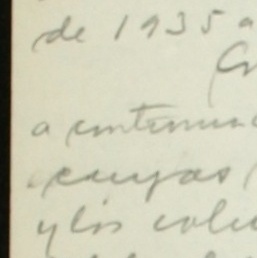 de 1935 a
a continua
cuyas
y los colu